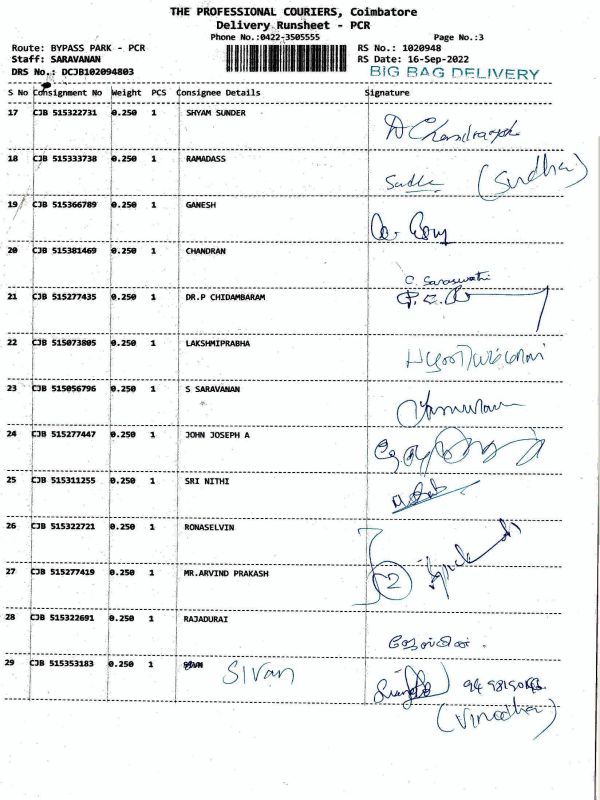 THE PROFESSIONAL COURIERS, Coimbatore
Delivery Runsheet - PCR
Phone No.:0422-3505555 Page No.:3
Route: BYPASS PARK - PCR RS No.: 1020948
Staff: SARAVANAN RS Date: 16-Sep-2022
DRS No.: DCJB102094803 BIG BAG DELIVERY
S No Consignment No Weight PCS Consignee Details Signature
17 CJB 515322731 0.250 1 SHYAM SUNDER
18 CJB 515333738 0.250 1 RAMADASS
Sudha (Sudha)
19 CJB 515366789 0.250 1 GANESH
20 CJB 515381469 0.250 1 CHANDRAN
C. Saraswathi
21 CJB 515277435 0.250 1 DR.P CHIDAMBARAM
22 CJB 515073805 0.250 1 LAKSHMIPRABHA
23 CJB 515056796 0.250 1 S SARAVANAN
24 CJB 515277447 0.250 1 JOHN JOSEPH A
25 CJB 515311255 0.250 1 SRI NITHI
26 CJB 515322721 0.250 1 RONASELVIN
27 CJB 515277419 0.250 1 MR.ARVIND PRAKASH
2
28 CJB 515322691 0.250 1 RAJADURAI
29 CJB 515353183 0.250 1 SIVAN